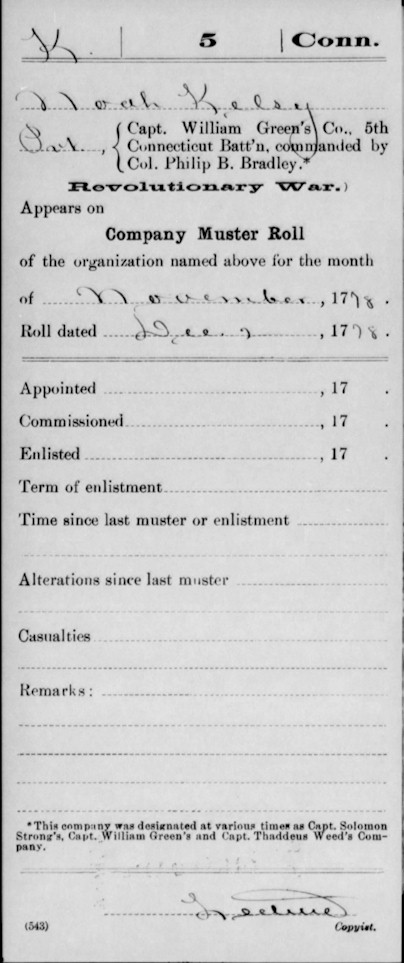 K. | 5 | Conn.
Noah Kelsy
Pvt., { Capt. William Green's Co., 5th
Connecticut Batt'n, commanded by
Col. Philip B. Bradley.*
Revolutionary War.)
Appears on
Company Muster Roll
of the organization named above for the month
of November, 1778.
Roll dated Dec. 7, 1778.
Appointed , 17 .
Commissioned , 17 .
Enlisted , 17 .
Term of enlistment
Time since last muster or enlistment
Alterations since last muster
Casualties
Remarks:
*This company was designated at various times as Capt. Solomon
Strong's, Capt. William Green's and Capt. Thaddeus Weed's Com-
pany.
(543) Copyist.